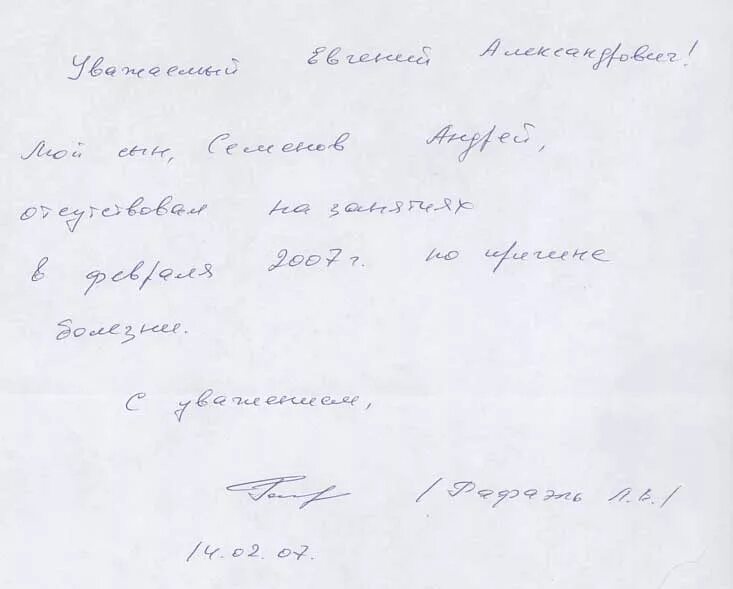 Уважаемый Евгений Александрович!
Мой сын, Семенов Андрей,
отсутствовал на занятиях
в февраля 2007 г. по причине
болезни.
С уважением,
/Рафаэль Л.В./
14.02.07.